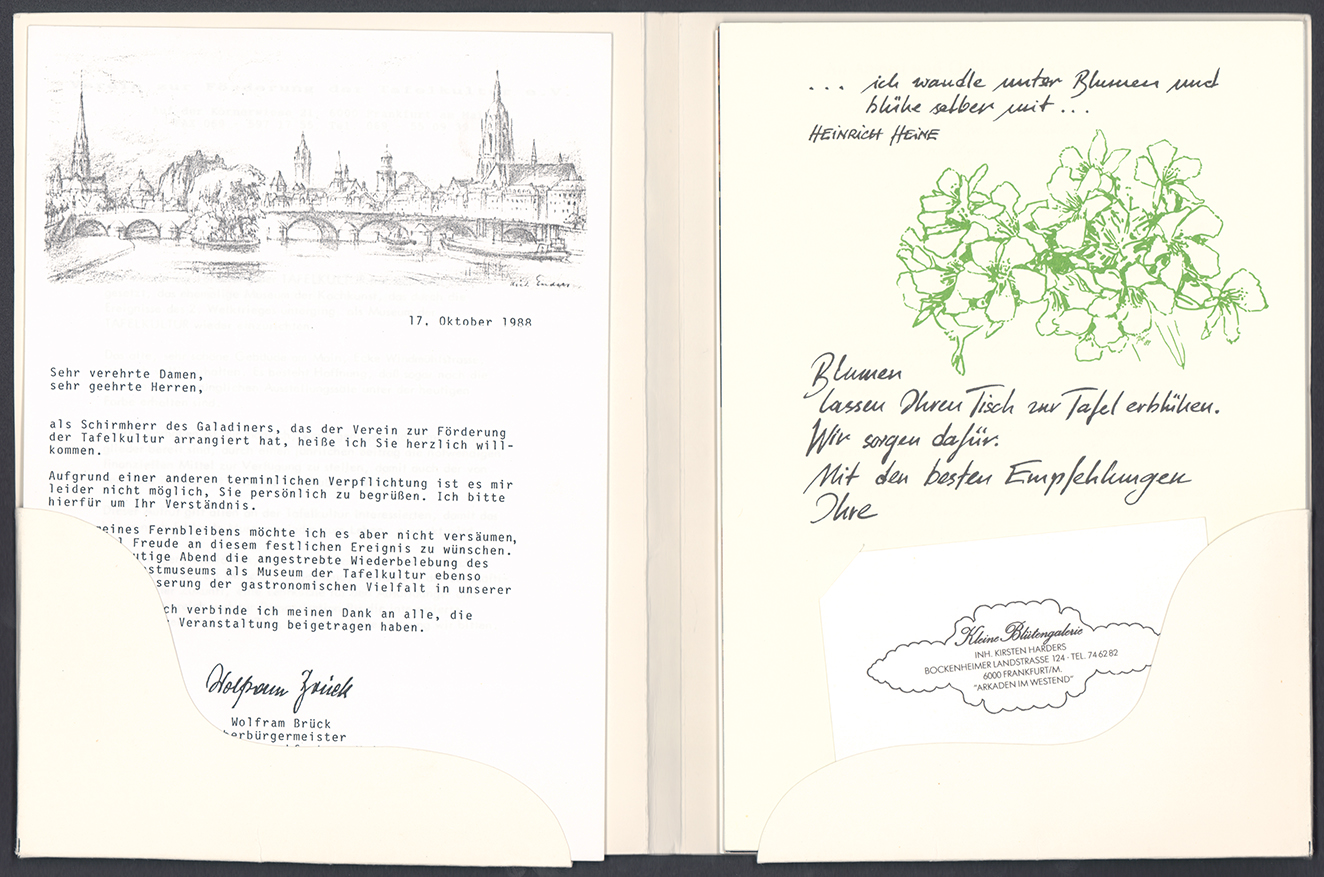 17. Oktober 1988
Sehr verehrte Damen,
sehr geehrte Herren,
als Schirmherr des Galadiners, das der Verein zur Förderung
der Tafelkultur arrangiert hat, heiße ich Sie herzlich will-
kommen.
Aufgrund einer anderen terminlichen Verpflichtung ist es mir
leider nicht möglich, Sie persönlich zu begrüßen. Ich bitte
hierfür um Ihr Verständnis.
meines Fernbleibens möchte ich es aber nicht versäumen,
Freude an diesem festlichen Ereignis zu wünschen.
utige Abend die angestrebte Wiederbelebung des
stmuseums als Museum der Tafelkultur ebenso
serung der gastronomischen Vielfalt in unserer
ch verbinde ich meinen Dank an alle, die
Veranstaltung beigetragen haben.
Wolfram Brück
Wolfram Brück
berbürgermeister
... ich wandle unter Blumen und
blühe selber mit ...
HEINRICH HEINE
Blumen
lassen Ihren Tisch zur Tafel erblühen.
Wir sorgen dafür.
Mit den besten Empfehlungen
Ihre
Kleine Blütengalerie
INH. KIRSTEN HARDERS
BOCKENHEIMER LANDSTRASSE 124 - TEL. 74 62 82
6000 FRANKFURT/M.
"ARKADEN IM WESTEND"